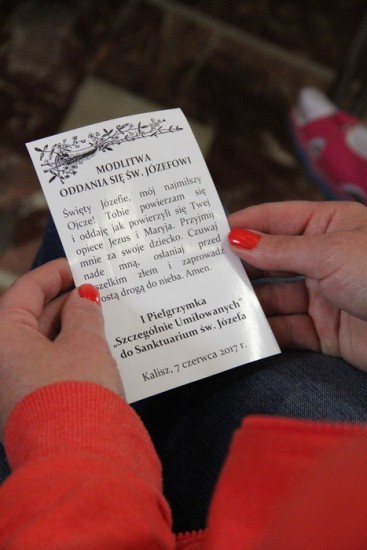 MODLITWA
ODDANIA SIĘ ŚW. JÓZEFOWI
Święty Józefie, mój najmilszy
Ojcze! Tobie powierzam się
i oddaję jak powierzyli się Twej
opiece Jezus i Maryja. Przyjmij
mnie za swoje dziecko. Czuwaj
nade mną, osłaniaj przed
szelkim złem i zaprowadź
ostą drogą do nieba. Amen.
I Pielgrzymka
„Szczególnie Umiłowanych"
do Sanktuarium św. Józefa
Kalisz, 7 czerwca 2017 r.